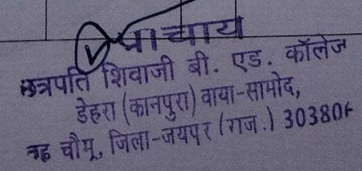 प्राचार्य
छत्रपति शिवाजी बी. एड. कॉलेज
डेहरा (कानपुरा) वाया-सामोद,
चौमू, जिला-जयपुर (राज.) 30380